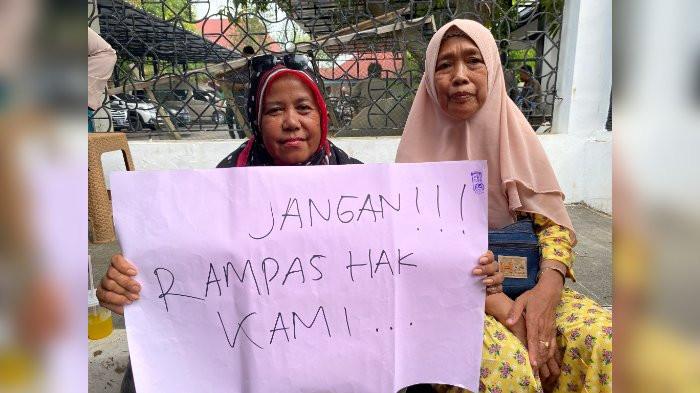 JANGAN!!!
RAMPAS HAK
KAMI...